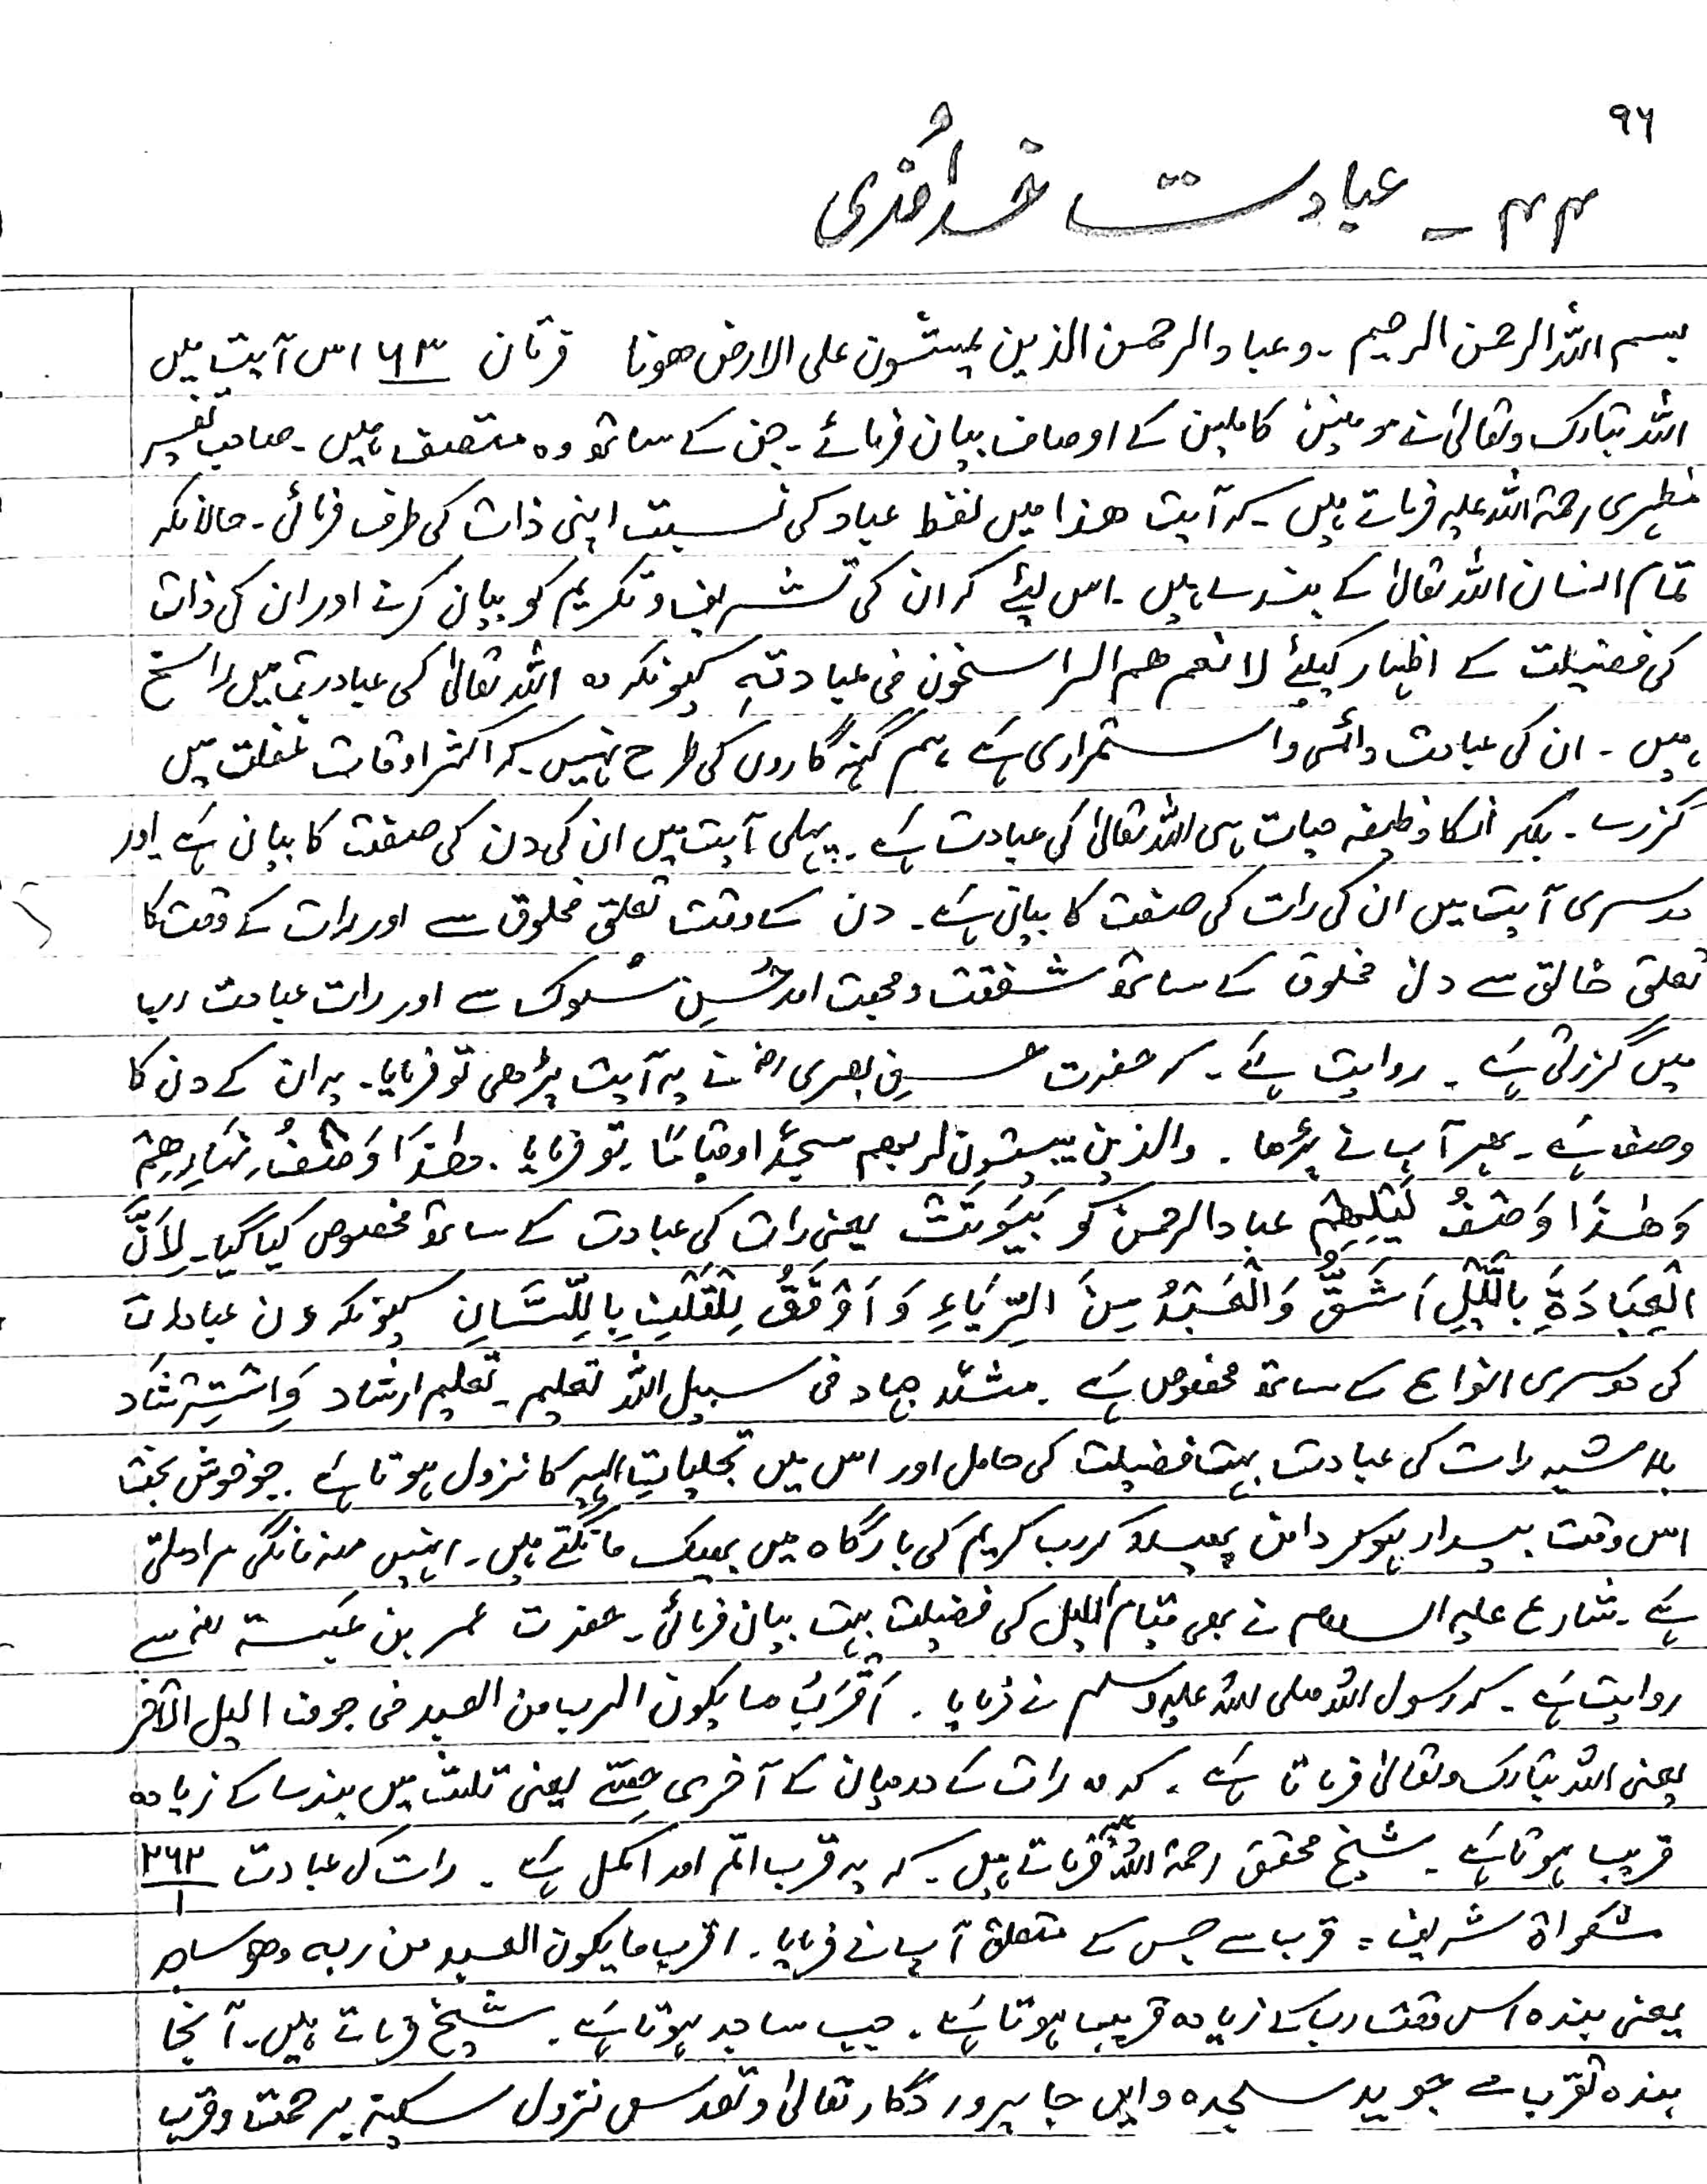 ۹۶
۴۴ - عبادت خداوندی
بسم اللہ الرحمن الرحیم ۔ وعباد الرحمن الذین یمشون علی الارض ھونا فرقان ۶۳ اس آیت میں
اللہ تبارک وتعالیٰ نے مومنین کاملین کے اوصاف بیان فرمائے ۔ جن کے ساتھ وہ متصف ہیں ۔ صاحب تفسیر
مظہری رحمۃ اللہ علیہ فرماتے ہیں ۔ کہ آیت ھذا میں لفظ عباد کی نسبت اپنی ذات کی طرف فرمائی ۔ حالانکہ
تمام انسان اللہ تعالیٰ کے بندے ہیں ۔ اس لیئے کہ ان کی تشریف و تکریم کو بیان کرنے اور ان کی ذات
کی فضیلت کے اظہار کیلئے لانھم ھم الراسخون فی عبادتہ کیونکہ وہ اللہ تعالیٰ کی عبادت میں راسخ
ہیں ۔ ان کی عبادت دائمی و استمراری ہے ہم گنہگاروں کی طرح نہیں کہ اکثر اوقات غفلت میں
گزرے ۔ بلکہ انکا وظیفہ حیات ہی اللہ تعالیٰ کی عبادت ہے ۔ پہلی آیت میں ان کی دن کی صفت کا بیان ہے اور
دوسری آیت میں ان کی رات کی صفت کا بیان ہے ۔ دن کے وقت تعلق مخلوق سے اور رات کے وقت کا
تعلق خالق سے دن مخلوق کے ساتھ شفقت و محبت اور حُسنِ سُلوک سے اور رات عبادت رب
میں گزرتی ہے ۔ روایت ہے ۔ کہ حضرت حسن بصری رض نے یہ آیت پڑھی تو فرمایا ۔ یہ ان کے دن کا
وصف ہے ۔ پھر آپ نے پڑھا ۔ والذین یبیتون لربھم سجدًا وقیامًا تو فرمایا ۔ ھٰذَا وَصْفُ نَہَارِھِمْ
وَھٰذَا وَصْفُ لَیْلِھِمْ عباد الرحمن کو بَیْتُوْتَتْ یعنی رات کی عبادت کے ساتھ مخصوص کیا گیا ۔ لِاَنَّ
الْعِبَادَۃَ بِاللَّیْلِ اَشَقُّ وَاَبْعَدُ مِنَ الرِّیَاءِ وَ اَوْفَقُ لِلْقَلْبِ بِاللِّسَانِ کیونکہ دن عبادات
کی دوسری انواع کے ساتھ مخصوص ہے ۔ مثلاً جہاد فی سبیل اللہ تعلیم ۔ تعلیم ارشاد وَاسْتِرْشَاد
بلاشبہ رات کی عبادت بہت فضیلت کی حامل اور اس میں تجلیاتِ الہیہ کا نزول ہوتا ہے ۔ جو خوش بخت
اس وقت بیدار ہو کر دامن پھیلا کر رب کریم کی بارگاہ میں بھیک مانگتے ہیں ۔ انہیں منہ مانگی مراد ملتی
ہے ۔ شارع علیہ السلام نے بھی قیام اللیل کی فضیلت بہت بیان فرمائی ۔ حضرت عمر بن عبسۃ رض سے
روایت ہے ۔ کہ رسول اللہ صلی اللہ علیہ وسلم نے فرمایا ۔ اَقْرَبُ ما یکون الرب من العبد فی جوف الیل الآخر
یعنی اللہ تبارک وتعالیٰ فرماتا ہے ۔ کہ وہ رات کے درمیان کے آخری حصّے یعنی ثلث میں بندے کے زیادہ
قریب ہوتا ہے ۔ شیخ محقق رحمۃ اللہ علیہ فرماتے ہیں ۔ کہ یہ قرب اتم اور اکمل ہے ۔ رات کی عبادت ۳۶۳/۱
مشکواۃ شریف : قرب ہے جس کے متعلق آپ نے فرمایا ۔ اقرب ما یکون العبد من ربہ وھو ساجد
یعنی بندہ اس وقت رب کے زیادہ قریب ہوتا ہے ۔ جب ساجد ہوتا ہے ۔ شیخ فرماتے ہیں ۔ آنجا
بندہ تقرب مے جوید بسجدہ واین جا پروردگار تعالیٰ وتقدس نزول رحمت وقرب